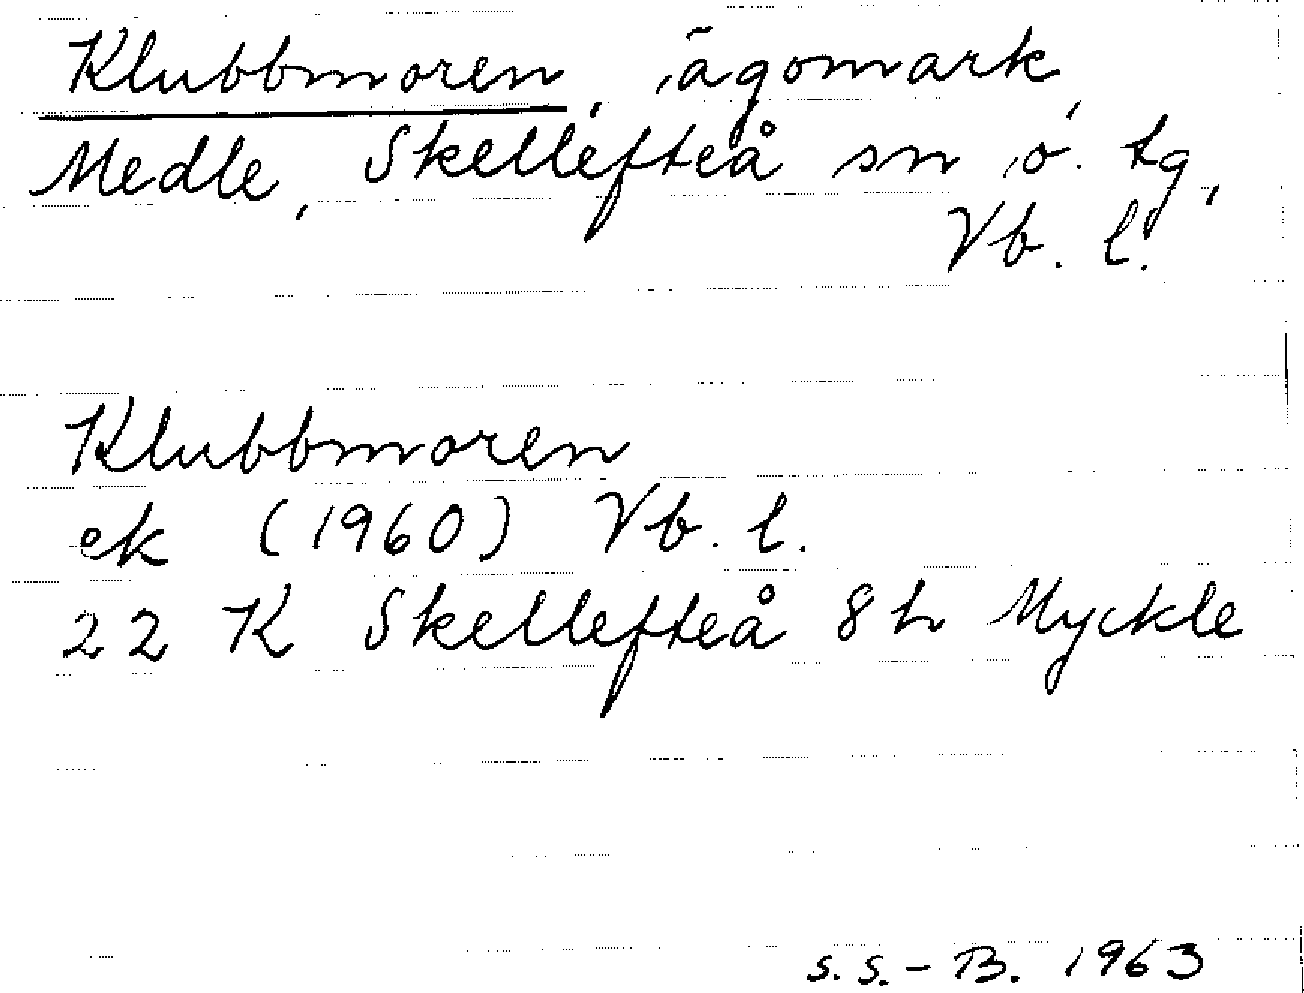 Klubbmoren, ägomark,
Medle, Skellefteå sn o. tg,
Vb. l.
Klubbmoren
ek (1960) Vb. l.
22 K Skellefteå 8 h Myckle
S.S.-B. 1963